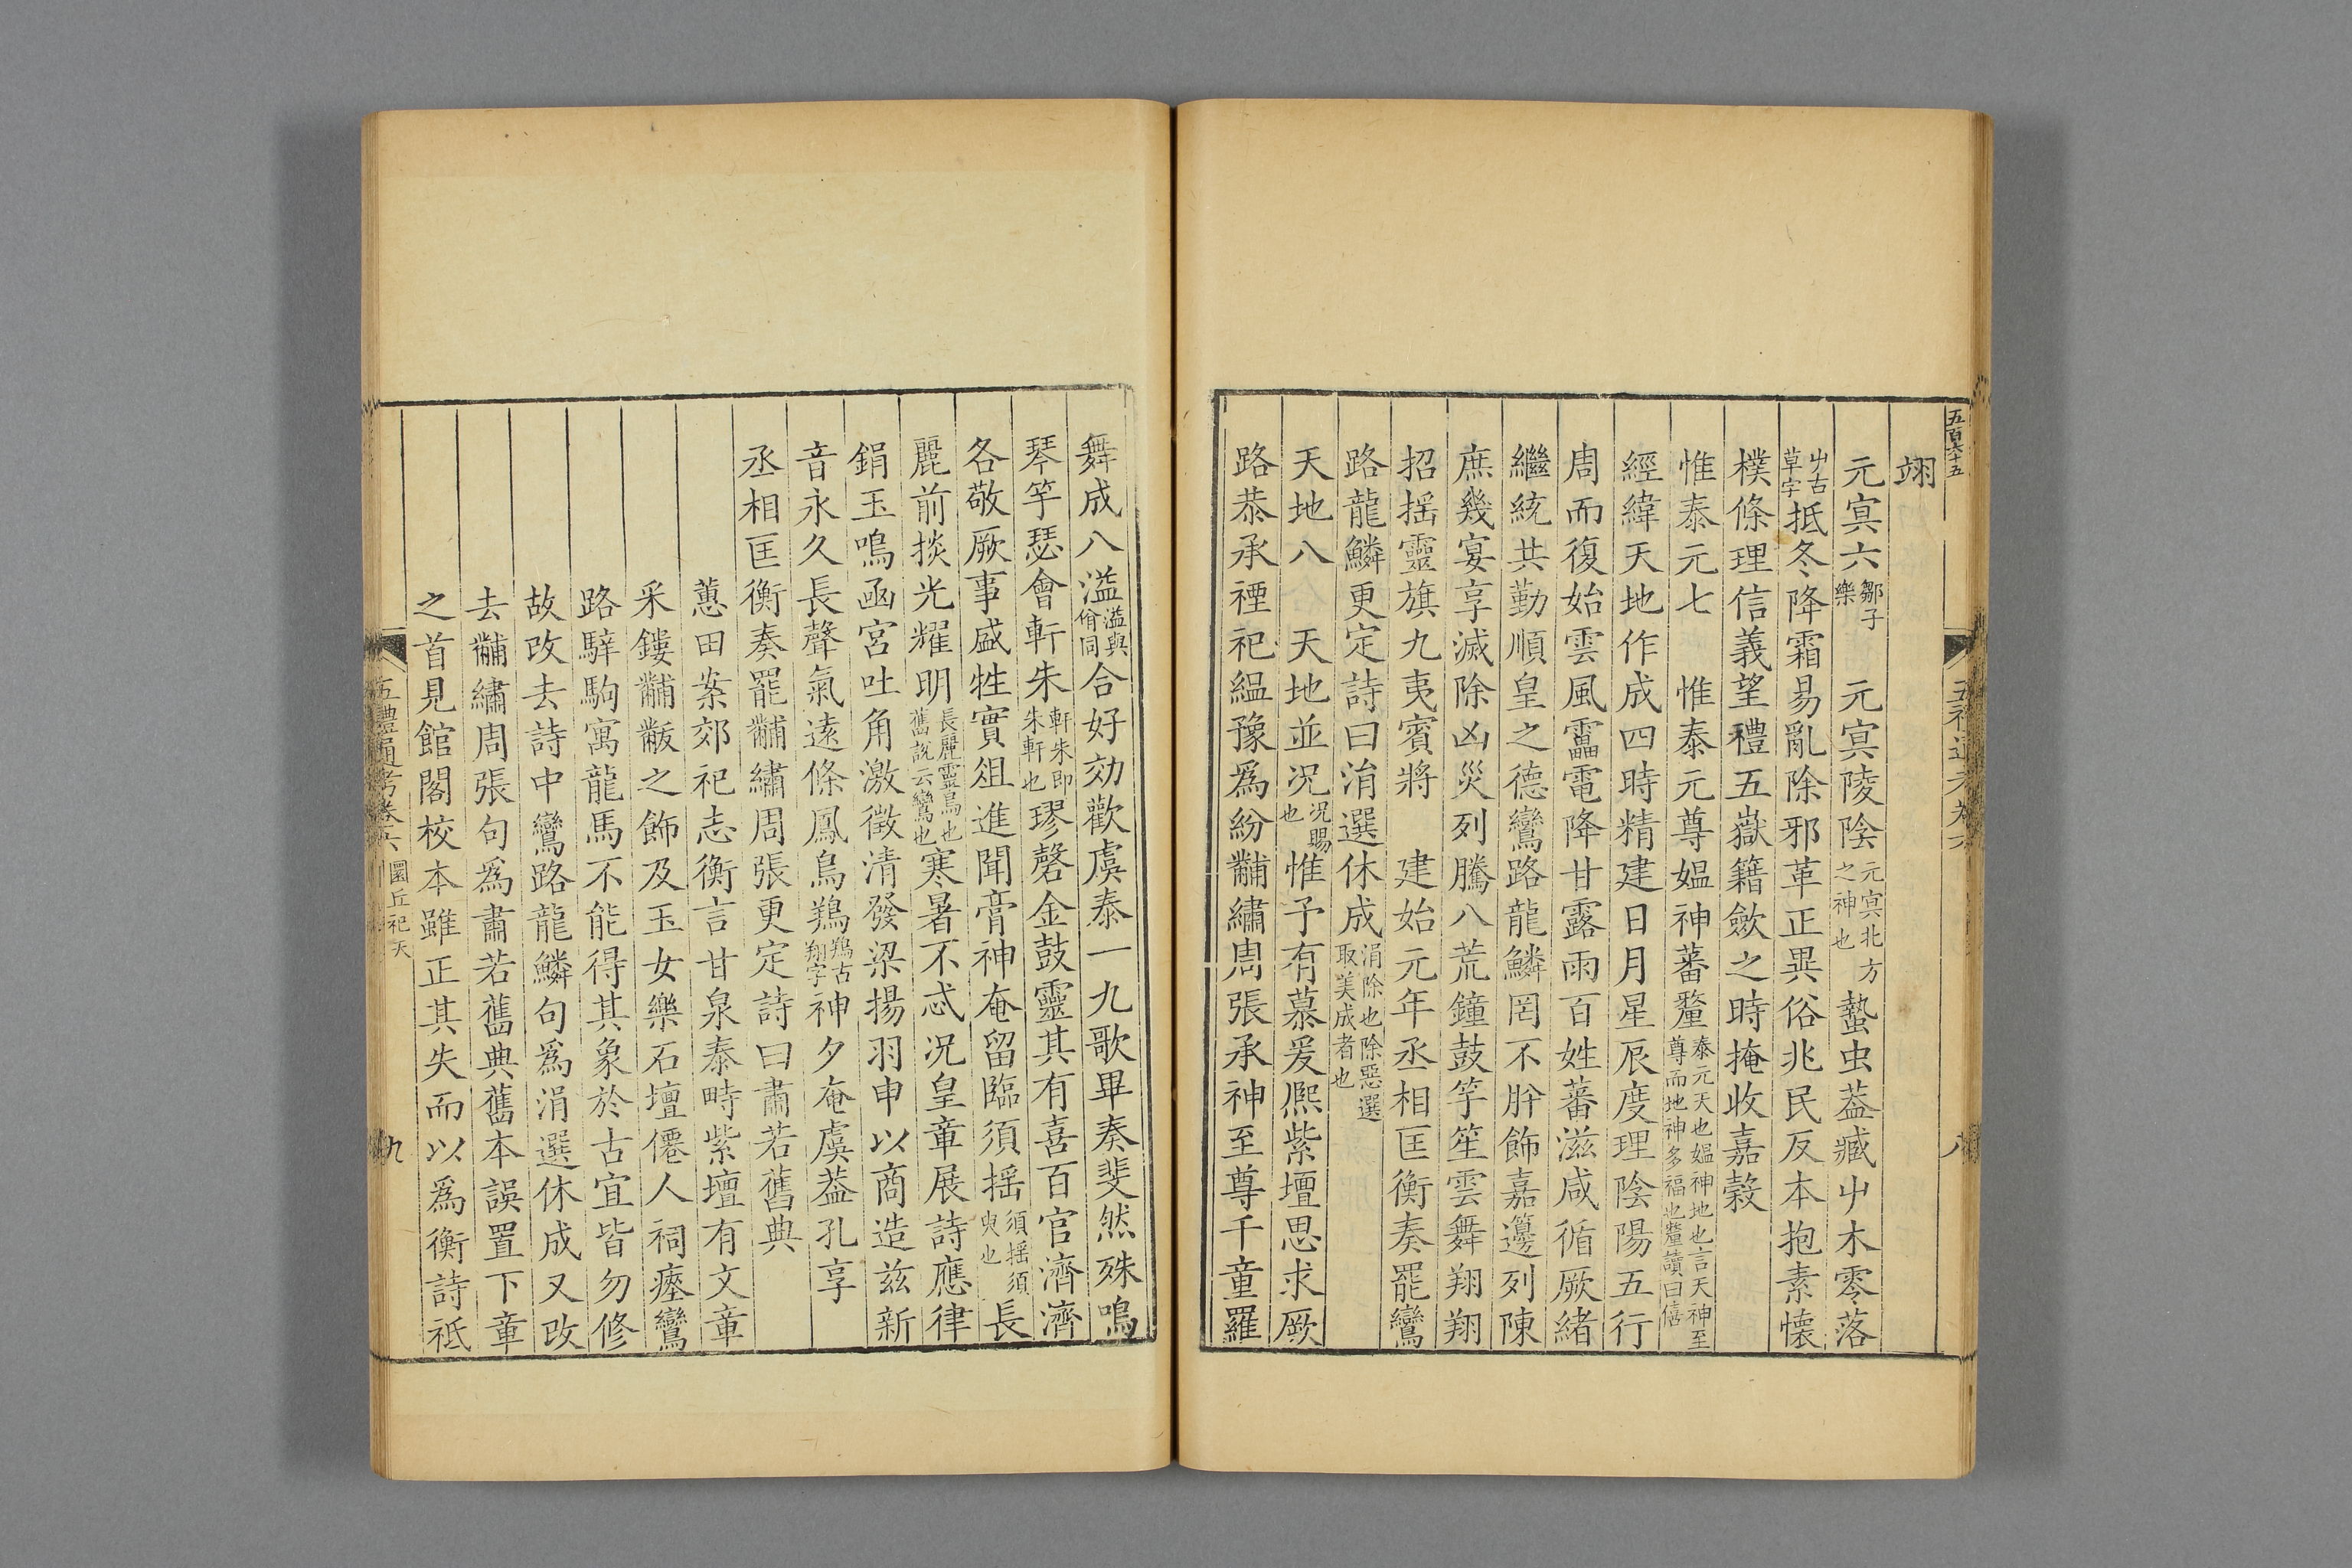 五百六十五
翊
元冥六鄒子樂　元冥陵陰元冥北方之神也蟄虫蓋臧屮木零落
屮古草字抵冬降霜易亂除邪革正異俗兆民反本抱素懷
樸條理信義望禮五嶽籍斂之時掩收嘉穀
惟泰元七　惟泰元尊媼神蕃釐泰元天也媼神地也言天神至尊而地神多福也釐讀曰僖
經緯天地作成四時精建日月星辰度理陰陽五行
周而復始雲風靁電降甘露雨百姓蕃滋咸循厥緒
繼統共勤順皇之德鸞路龍鱗罔不肸飾嘉籩列陳
庶幾宴享滅除凶災列騰八荒鐘鼓竽笙雲舞翔翔
招搖靈旗九夷賓將　建始元年丞相匡衡奏罷鸞
路龍鱗更定詩曰涓選休成涓除也除惡選取美成者也
天地八　天地並況況賜也惟予有慕爰熙紫壇思求厥
路恭承禋祀縕豫爲紛黼繡周張承神至尊千童羅
舞成八溢溢與佾同合好効歡虞泰一九歌畢奏斐然殊鳴
琴竽瑟會軒朱軒朱即朱軒也璆磬金鼓靈其有喜百官濟濟
各敬厥事盛牲實俎進聞膏神奄留臨須搖須搖須臾也長
麗前掞光耀明長麗靈鳥也舊說云鸞也寒暑不忒況皇章展詩應律
鋗玉鳴函宮吐角激徵清發梁揚羽申以商造茲新
音永久長聲氣遠條鳳鳥鴹鴹古翔字神夕奄虞蓋孔享
丞相匡衡奏罷黼繡周張更定詩曰肅若舊典
蕙田案郊祀志衡言甘泉泰畤紫壇有文章
采鏤黼黻之飾及玉女樂石壇僊人祠瘞鸞
路騂駒寓龍馬不能得其象於古宜皆勿修
故改去詩中鸞路龍鱗句爲涓選休成又改
去黼繡周張句爲肅若舊典舊本誤置下章
之首見館閣校本雖正其失而以爲衡詩祗
五禮通考卷六　圜丘祀天
九